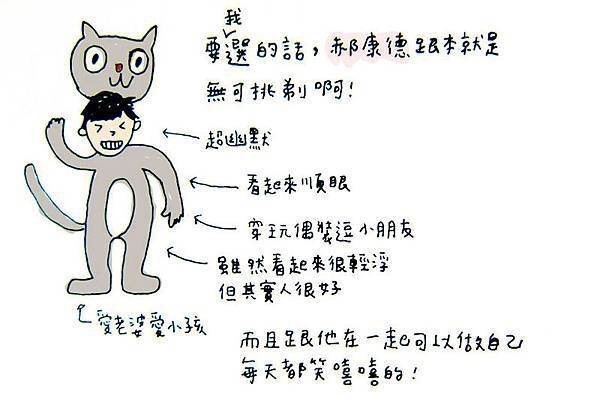 我
要選的話，郝康德跟本就是
無可挑剃啊！
超幽默
看起來順眼
穿玩偶裝逗小朋友
雖然看起來很輕浮
但其實人很好
愛老婆愛小孩
而且跟他在一起可以做自己
每天都笑嘻嘻的！